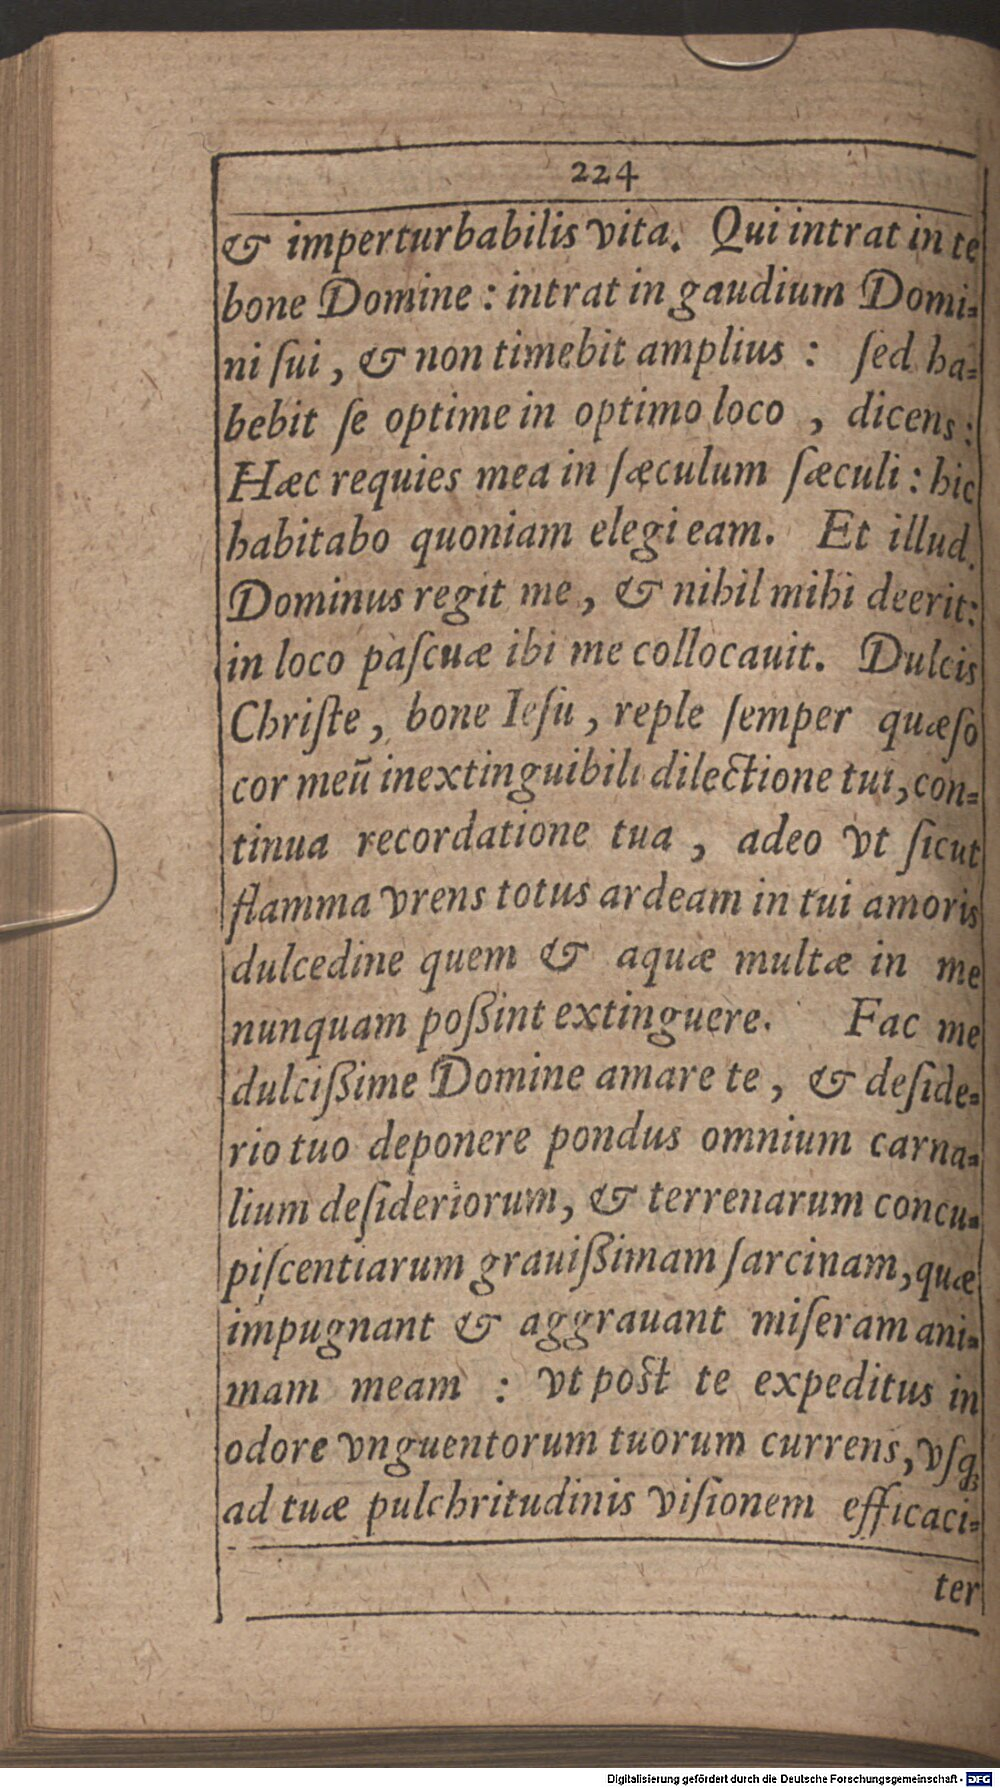 224
& imperturbabilis vita. Qui intrat in te
bone Domine : intrat in gaudium Domi-
ni ſui , & non timebit amplius : ſed ha-
bebit ſe optime in optimo loco , dicens :
Hæc requies mea in ſæculum ſæculi : hic
habitabo quoniam elegi eam. Et illud.
Dominus regit me , & nihil mihi deerit:
in loco paſcuæ ibi me collocauit. Dulcis
Chriſte , bone Ieſu , reple ſemper quæſo
cor meũ inextinguibili dilectione tui, con-
tinua recordatione tua , adeo vt ſicut
flamma vrens totus ardeam in tui amoris
dulcedine quem & aquæ multæ in me
nunquam poßint extinguere. Fac me
dulcißime Domine amare te , & deſide-
rio tuo deponere pondus omnium carna-
lium deſideriorum, & terrenarum concu-
piſcentiarum grauißimam ſarcinam, quæ
impugnant & aggrauant miſeram ani-
mam meam : vt post te expeditus in
odore vnguentorum tuorum currens, vſq;
ad tuæ pulchritudinis viſionem efficaci-
ter
Digitalisierung gefördert durch die Deutsche Forschungsgemeinschaft - DFG